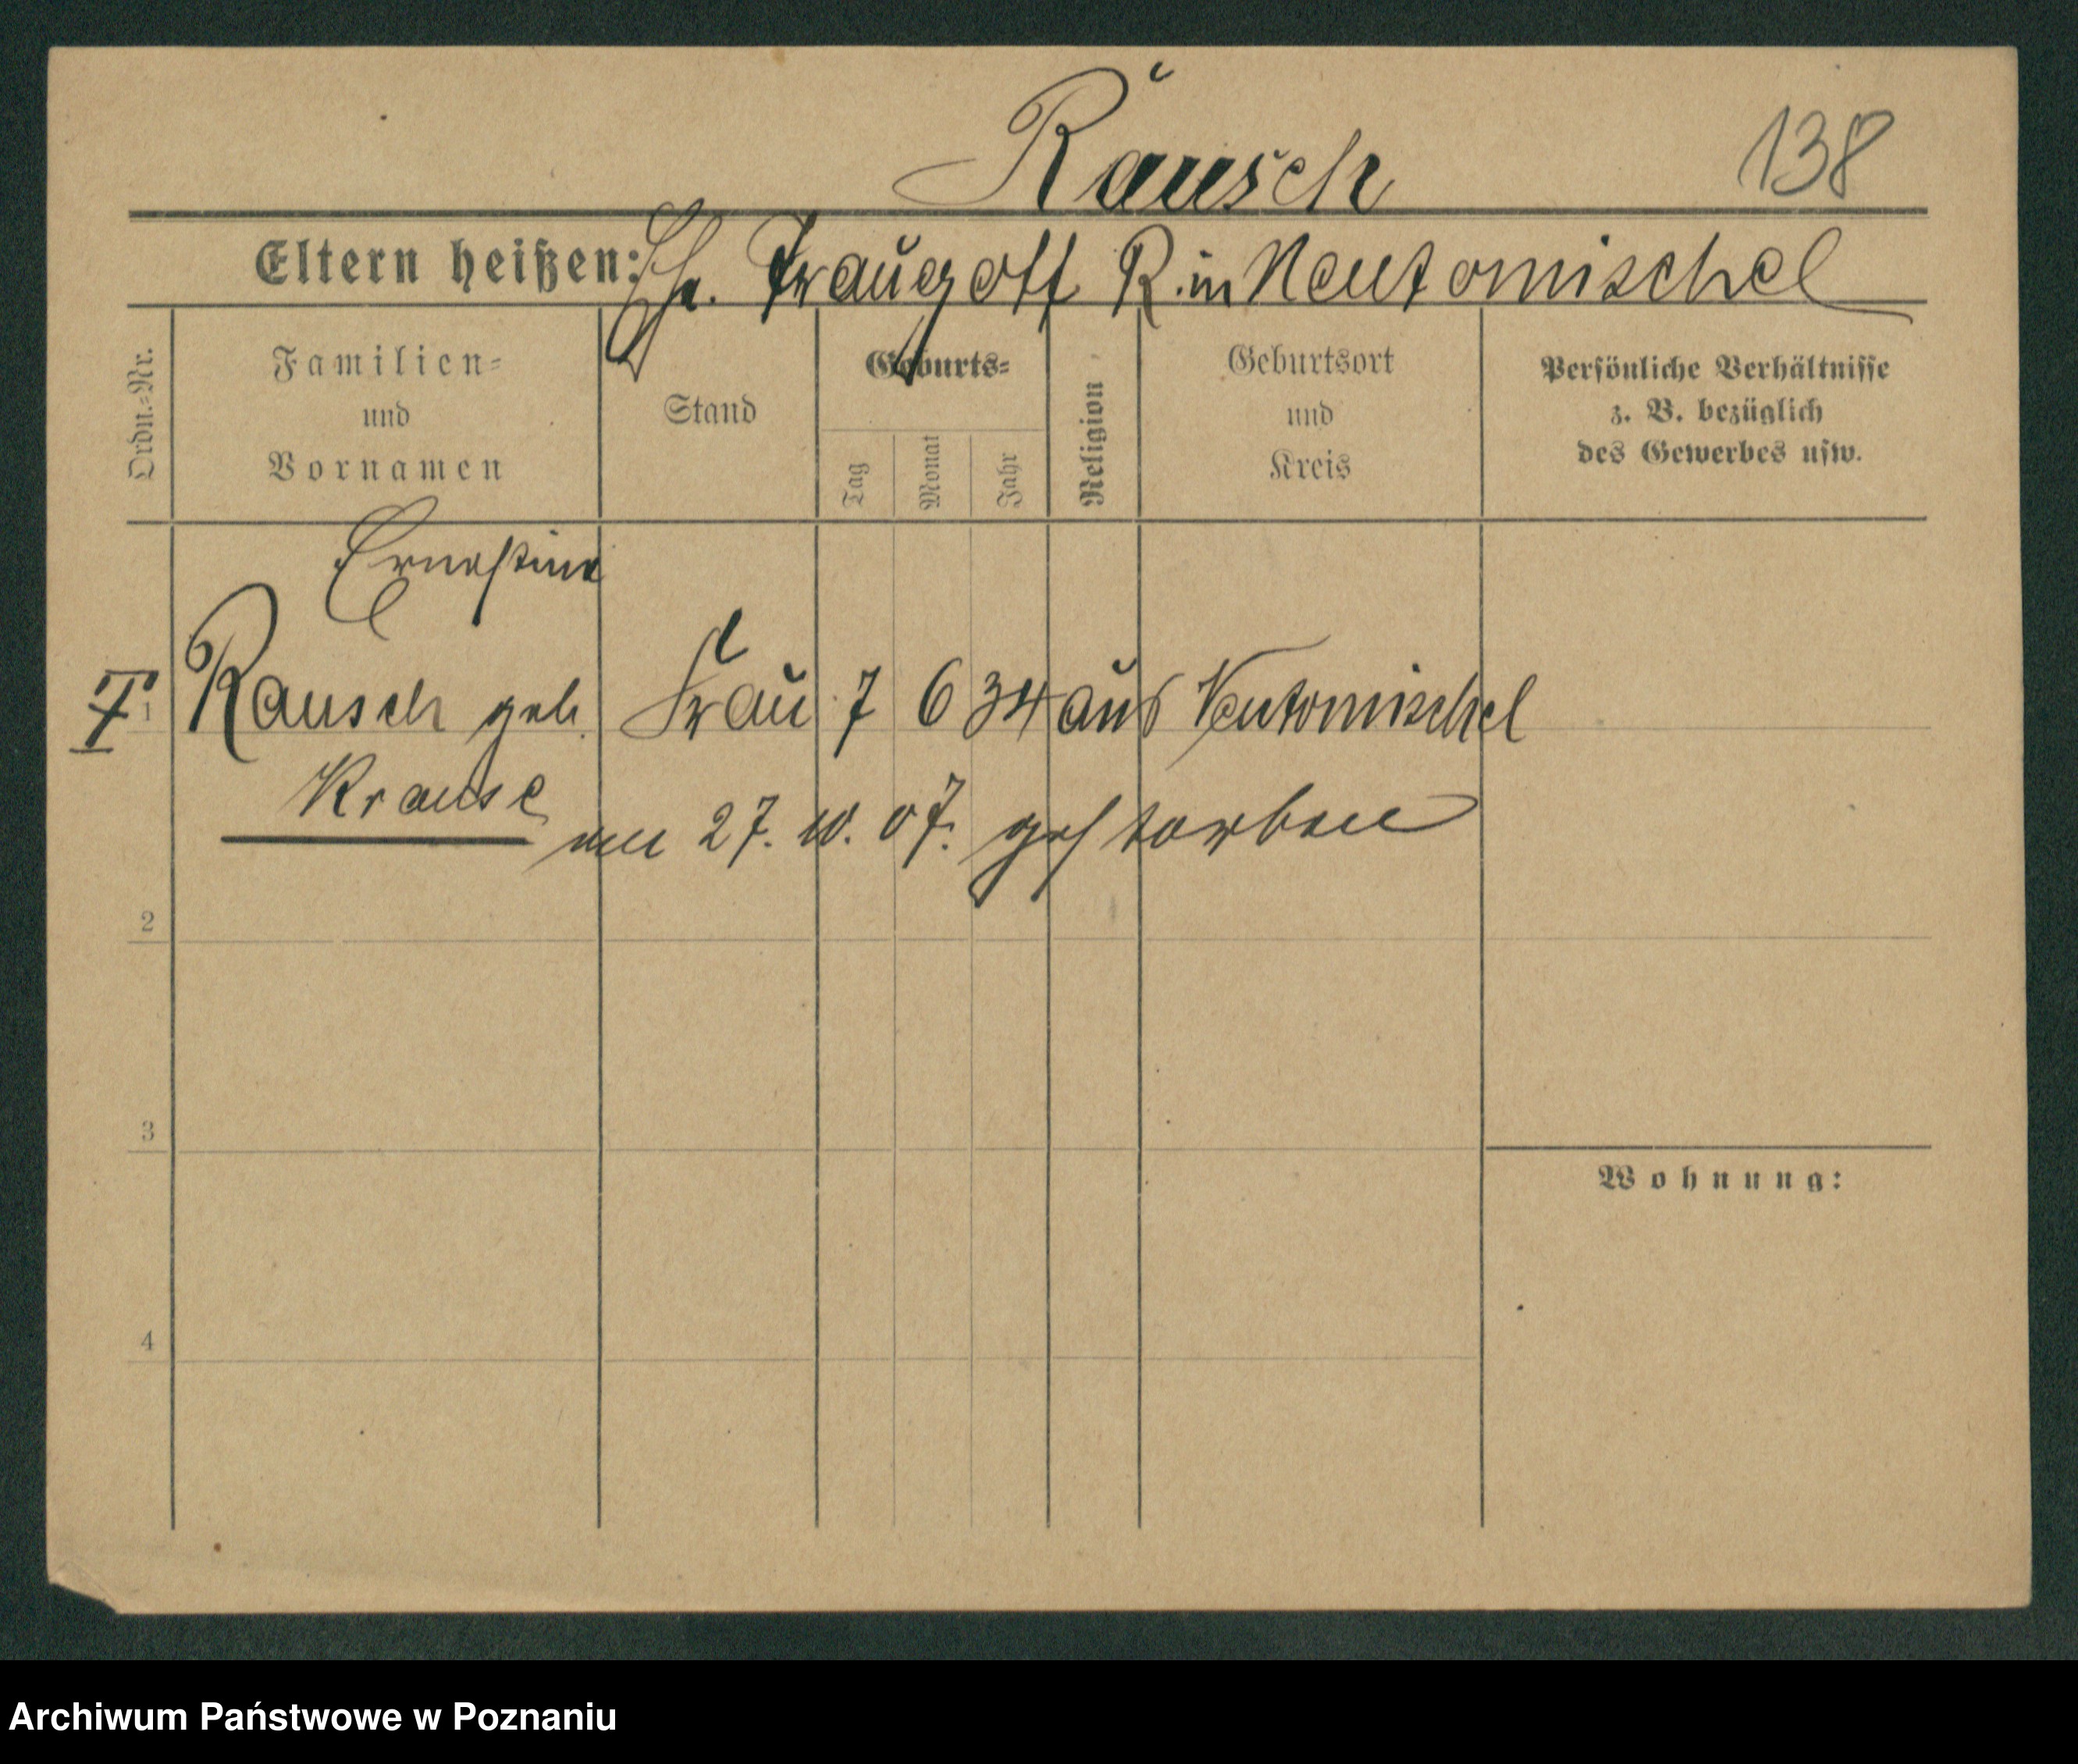 Rausch
138
Eltern heißen: Eh. Traugott R. in Neutomischel
Ordn.=Nr.
Familien=
und
Vornamen
Stand
Geburts=
Tag
Monat
Jahr
Religion
Geburtsort
und
Kreis
Persönliche Verhältnisse
z. B. bezüglich
des Gewerbes usw.
Ernestine
1 Rausch geb. Frau 7 6 34 aus Neutomischel
Krause
am 27. 10. 07. gestorben
2
3
Wohnung:
4
Archiwum Państwowe w Poznaniu